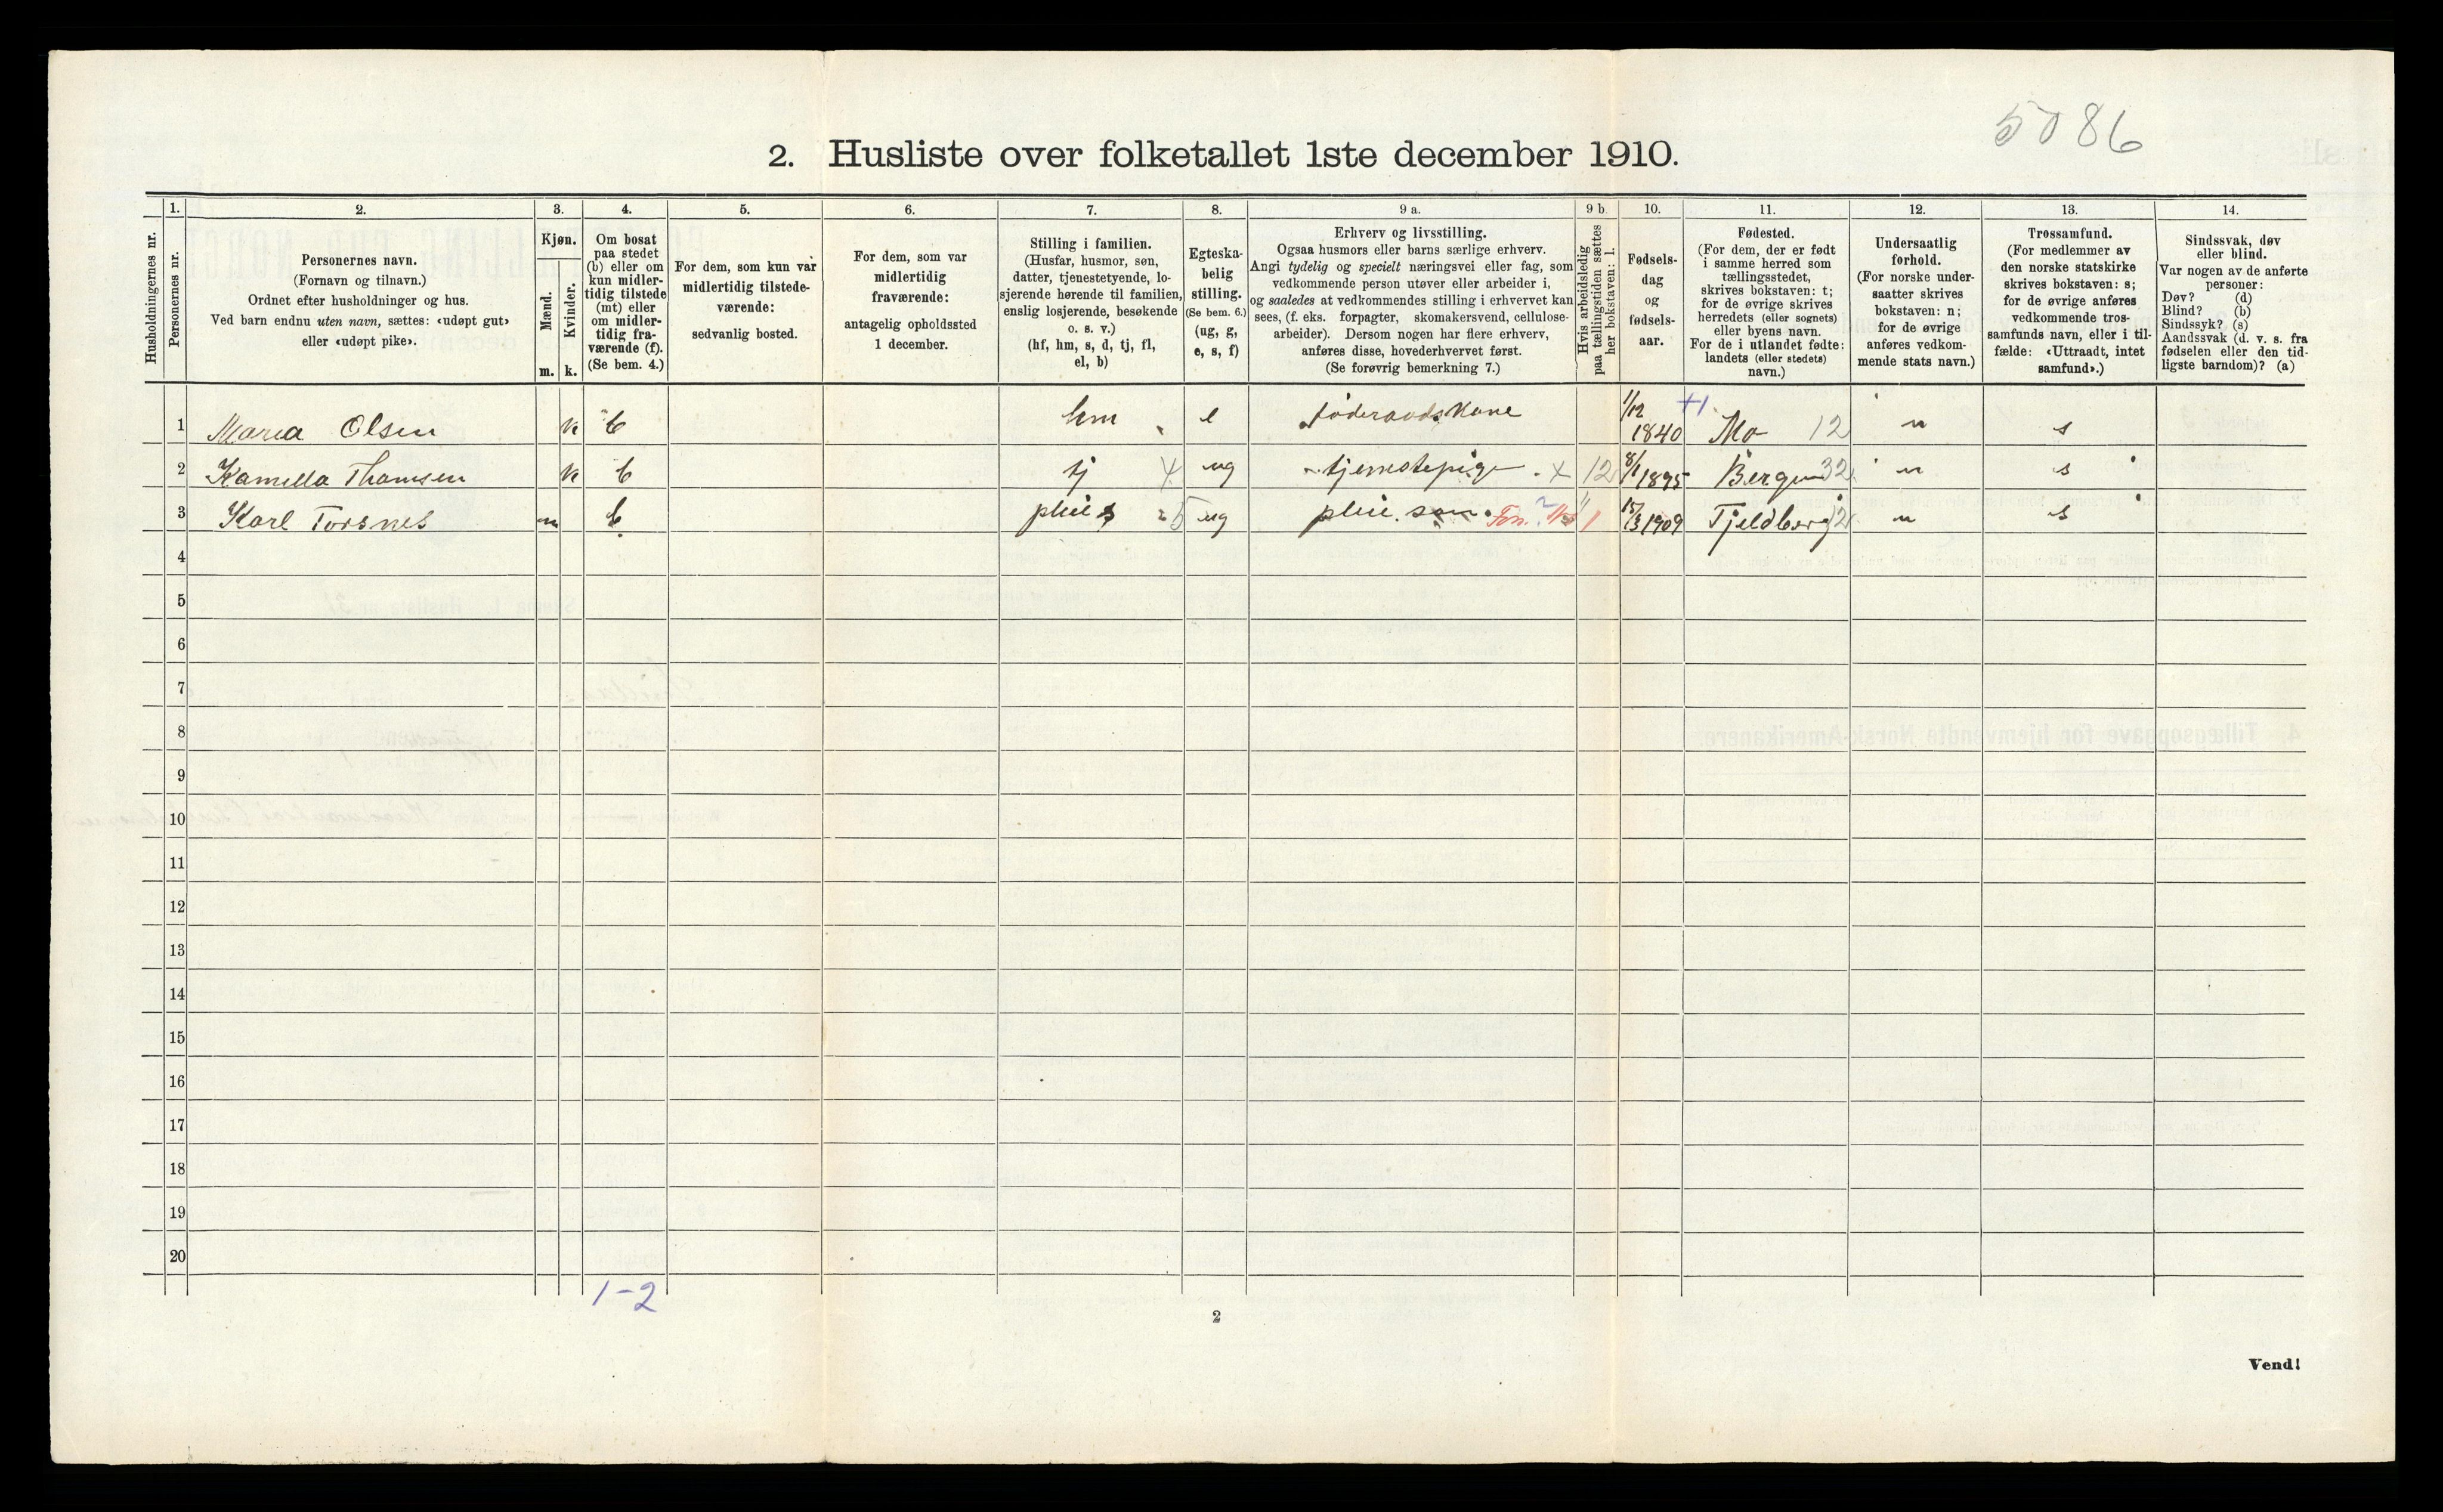 5086
2. Husliste over folketallet 1ste december 1910.
1. 2. 3. 4. 5. 6. 7. 8. 9 a. 9 b. 10. 11. 12. 13. 14.
Husholdningernes nr.
Personernes nr.
Personernes navn.
(Fornavn og tilnavn.)
Ordnet efter husholdninger og hus.
Ved barn endnu uten navn, sættes: «udøpt gut»
eller «udøpt pike».
Kjøn.
Mænd.
Kvinder.
m. k.
Om bosat
paa stedet
(b) eller om
kun midler-
tidig tilstede
(mt) eller
om midler-
tidig fra-
værende (f).
(Se bem. 4.)
For dem, som kun var
midlertidig tilstede-
værende:
sedvanlig bosted.
For dem, som var
midlertidig
fraværende:
antagelig opholdssted
1 december.
Stilling i familien.
(Husfar, husmor, søn,
datter, tjenestetyende, lo-
sjerende hørende til familien,
enslig losjerende, besøkende
o. s. v.)
(hf, hm, s, d, tj, fl,
el, b)
Egteska-
belig
stilling.
(Se bem. 6.)
(ug, g,
e, s, f)
Erhverv og livsstilling.
Ogsaa husmors eller barns særlige erhverv.
Angi tydelig og specielt næringsvei eller fag, som
vedkommende person utøver eller arbeider i,
og saaledes at vedkommendes stilling i erhvervet kan
sees, (f. eks. forpagter, skomakersvend, cellulose-
arbeider). Dersom nogen har flere erhverv,
anføres disse, hovederhvervet først.
(Se forøvrig bemerkning 7.)
Hvis arbeidsledig
paa tællingstiden sættes
her bokstaven: l.
Fødsels-
dag
og
fødsels-
aar.
Fødested.
(For dem, der er født
i samme herred som
tællingsstedet,
skrives bokstaven: t;
for de øvrige skrives
herredets (eller sognets)
eller byens navn.
For de i utlandet fødte:
landets (eller stedets)
navn.)
Undersaatlig
forhold.
(For norske under-
saatter skrives
bokstaven: n;
for de øvrige
anføres vedkom-
mende stats navn.)
Trossamfund.
(For medlemmer av
den norske statskirke
skrives bokstaven: s;
for de øvrige anføres
vedkommende tros-
samfunds navn, eller i til-
fælde: «Uttraadt, intet
samfund».)
Sindssvak, døv
eller blind.
Var nogen av de anførte
personer:
Døv? (d)
Blind? (b)
Sindssyk? (s)
Aandssvak (d. v. s. fra
fødselen eller den tid-
ligste barndom)? (a)
1 Maria Olsen k b hm e føderaadskone 1/12 1840 +1. Mo 12 n s
2 Kamella Thomsen k b tj ug tjenestepige x 12 8/1 1895 Bergen 32 n s
3 Karl Torsnes m b pleie s 5 ug pleie søn 1 15/3 1909 Fjeldberg 12 n s
4
5
6
7
8
9
10
11
12
13
14
15
16
17
18
19
20
1-2
2
Vend!